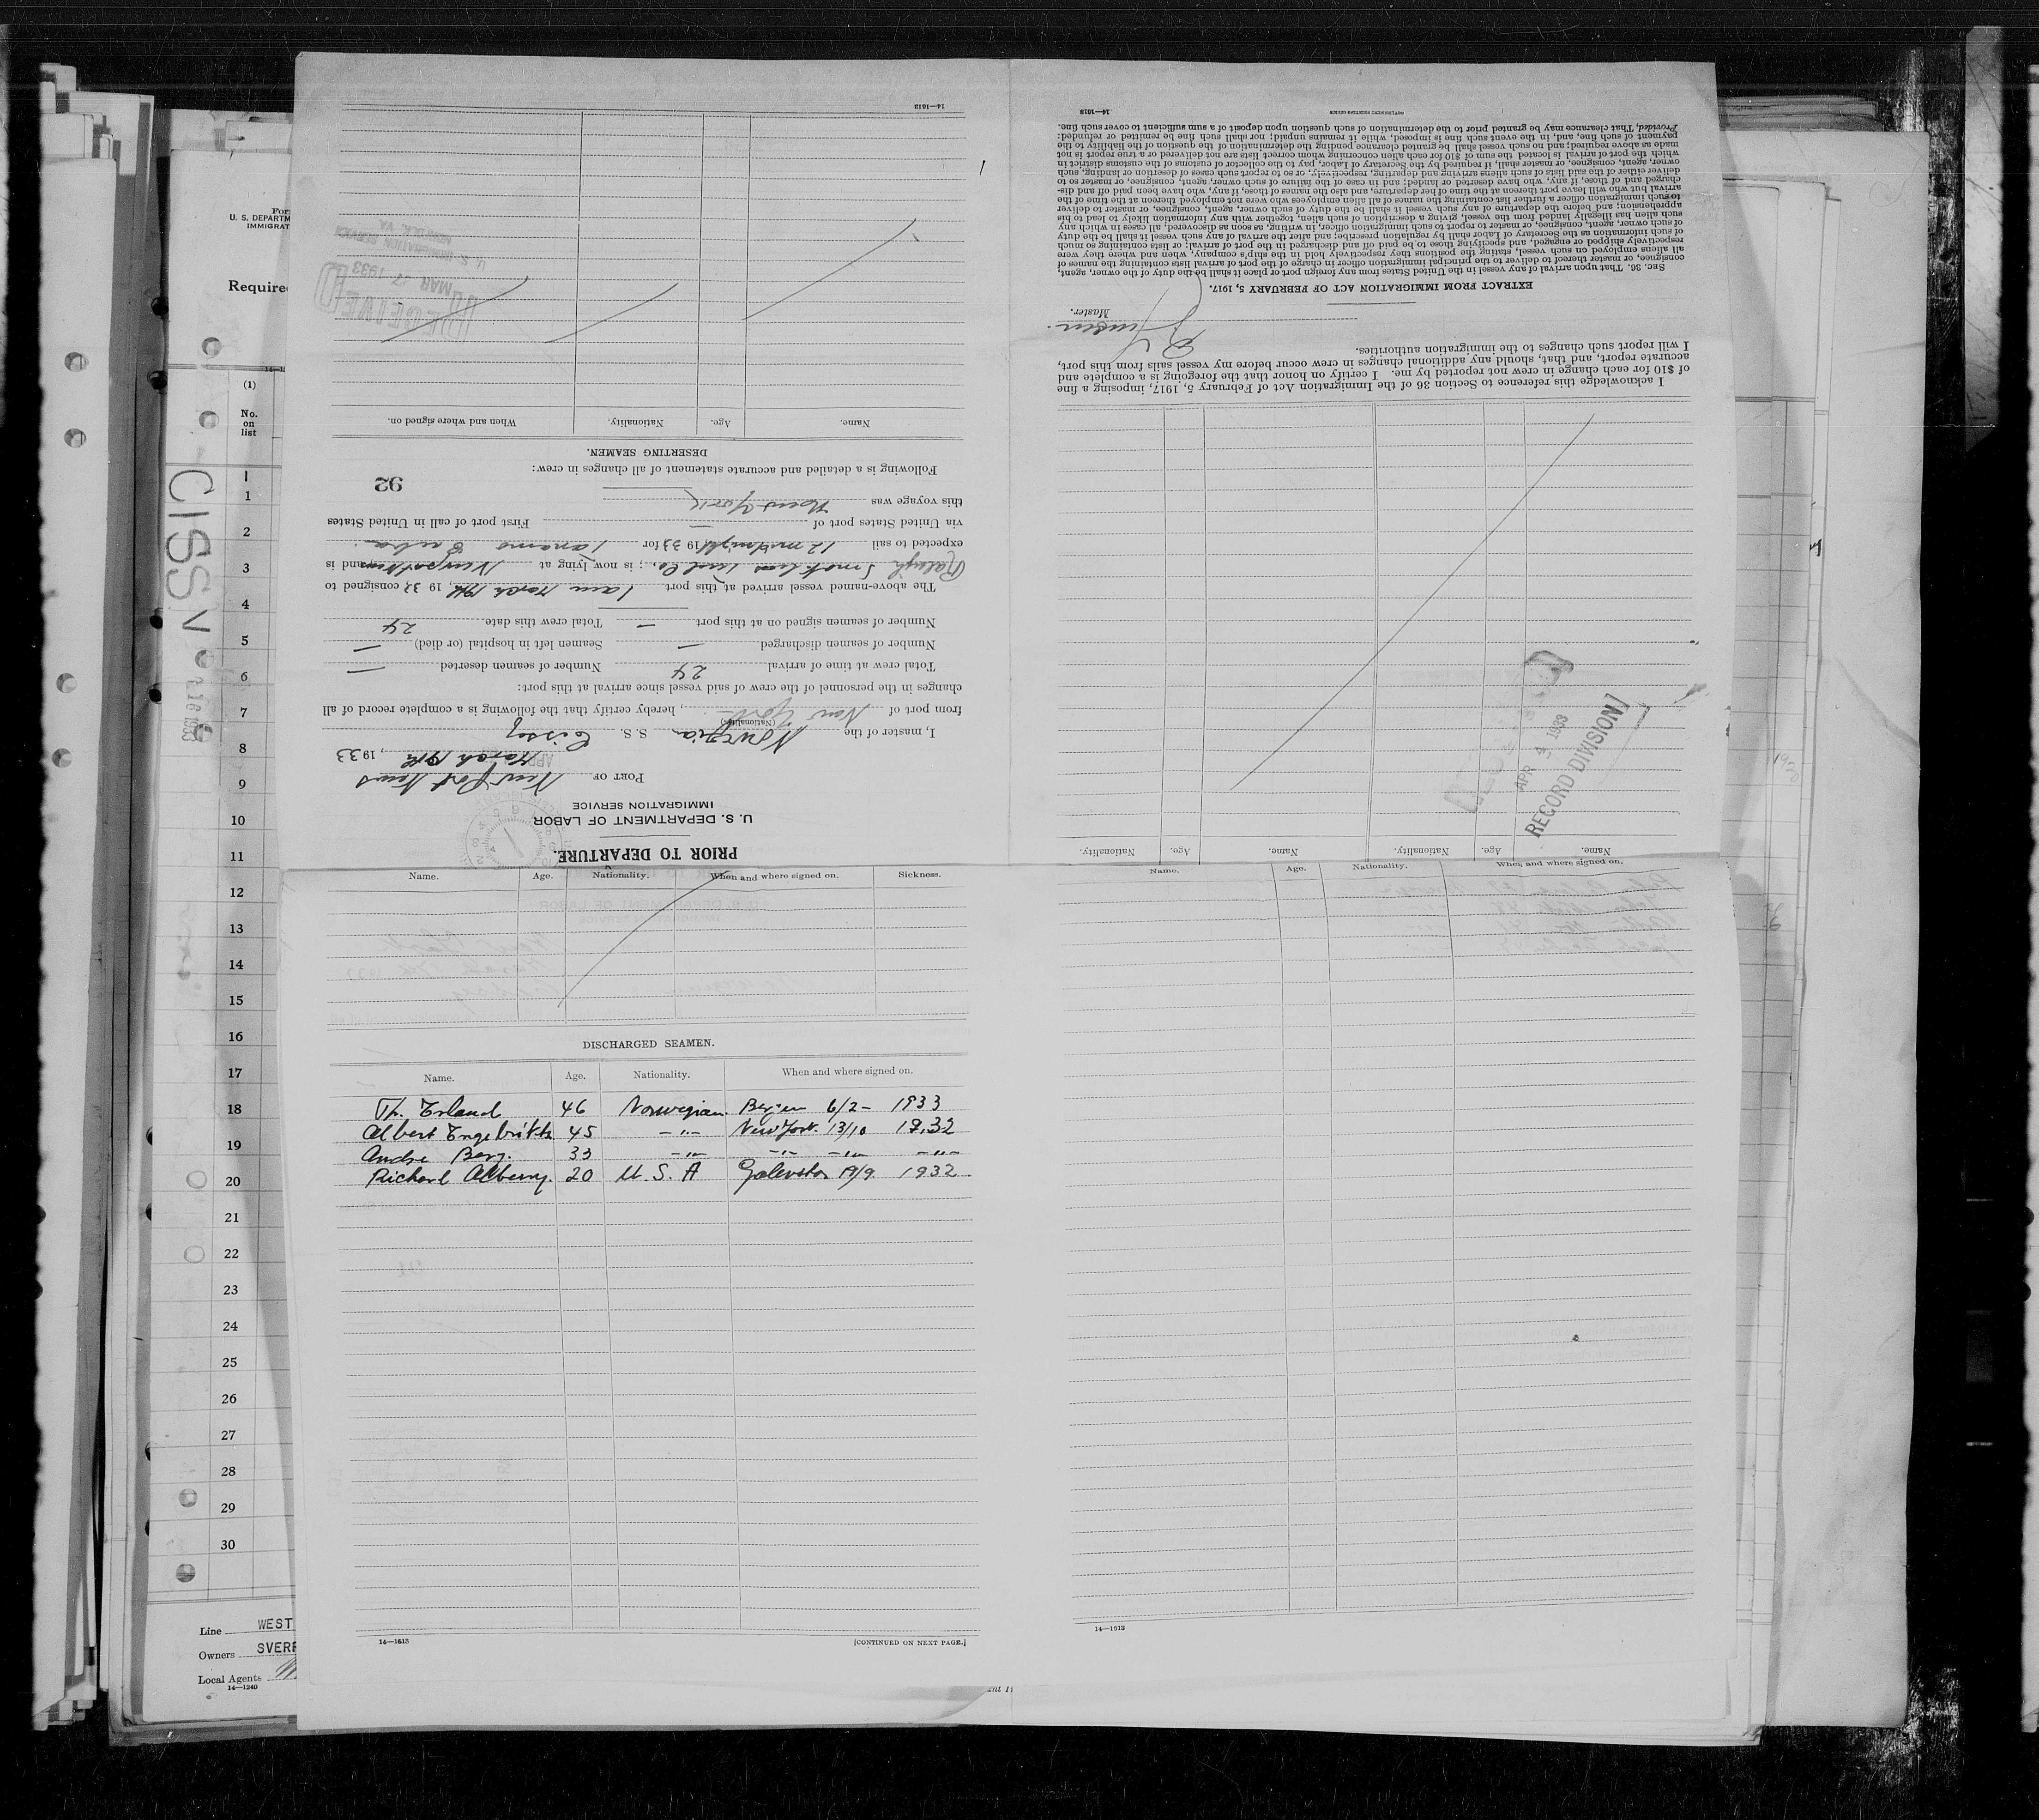 For
U. S. DEPARTM
IMMIGRAT
Require
(1)
No.
on
list
1
1
2
3
4
5
6
7
8
9
10
11
12
13
14
15
16
17
18
19
20
21
22
23
24
25
26
27
28
29
30
CISSY
Line WEST
Owners SVERR
Local Agents
14—1240
PRIOR TO DEPARTURE.
U. S. DEPARTMENT OF LABOR
IMMIGRATION SERVICE
PORT OF Newport News
March 19th, 1933
I, master of the Norwegian S. S. Cissy
(Nationality)
from port of New York, hereby certify that the following is a complete record of all
changes in the personnel of the crew of said vessel since arrival at this port:
Total crew at time of arrival 24 Number of seamen deserted —
Number of seamen discharged — Seamen left in hospital (or died) —
Number of seamen signed on at this port — Total crew this date 24
The above-named vessel arrived at this port 1 am March 19th, 1933 consigned to
Raleigh Smokeless Fuel Co.; is now lying at Newport News and is
expected to sail 12 midnight 1933 for Tanamo Cuba.
via United States port of — First port of call in United States
this voyage was New York
92
Following is a detailed and accurate statement of all changes in crew:
DESERTING SEAMEN.
Name. Age. Nationality. When and where signed on.
RECEIVED
MAR 27 1933
U. S. IMMIGRATION SERVICE
NORFOLK, VA.
14—1613
Name. Age. Nationality. Name. Age. Nationality.
RECORD DIVISION
APR 4 1933
I acknowledge this reference to Section 36 of the Immigration Act of February 5, 1917, imposing a fine
of $10 for each change in crew not reported by me. I certify on honor that the foregoing is a complete and
accurate report, and that, should any additional changes in crew occur before my vessel sails from this port,
I will report such changes to the immigration authorities.
Master.
EXTRACT FROM IMMIGRATION ACT OF FEBRUARY 5, 1917.
Sec. 36. That upon arrival of any vessel in the United States from any foreign port or place it shall be the duty of the owner, agent,
consignee, or master thereof to deliver to the principal immigration officer in charge of the port of arrival lists containing the names of
all aliens employed on such vessel, stating the positions they respectively hold in the ship's company, when and where they were
respectively shipped or engaged, and specifying those to be paid off and discharged in the port of arrival; or lists containing so much
of such information as the Secretary of Labor shall by regulation prescribe; and after the arrival of any such vessel it shall be the duty
of such owner, agent, consignee, or master to report to such immigration officer, in writing, as soon as discovered, all cases in which any
such alien has illegally landed from the vessel, giving a description of such alien, together with any information likely to lead to his
apprehension; and before the departure of any such vessel it shall be the duty of such owner, agent, consignee, or master to deliver
to such immigration officer a further list containing the names of all alien employees who were not employed thereon at the time of the
arrival but who will leave port thereon at the time of her departure, and also the names of those, if any, who have been paid off and dis-
charged and of those, if any, who have deserted or landed; and in case of the failure of such owner, agent, consignee, or master so to
deliver either of the said lists of such aliens arriving and departing, respectively, or so to report such cases of desertion or landing, such
owner, agent, consignee, or master shall, if required by the Secretary of Labor, pay to the collector of customs of the customs district in
which the port of arrival is located the sum of $10 for each alien concerning whom correct lists are not delivered or a true report is not
made as above required; and no such vessel shall be granted clearance pending the determination of the question of the liability to the
payment of such fine, and, in the event such fine is imposed, while it remains unpaid; nor shall such fine be remitted or refunded:
Provided, That clearance may be granted prior to the determination of such question upon deposit of a sum sufficient to cover such fine.
14—1613
GOVERNMENT PRINTING OFFICE
Name. Age. Nationality. When and where signed on. Sickness.
DISCHARGED SEAMEN.
Name. Age. Nationality. When and where signed on.
Th. Erland 46 Norwegian. Bergen 6/2- 1933
Albert Engebrikts 45 -"- New York. 13/10 1932
Andre Berg. 33 -"- -"- -"- -"-
Richard Albemy. 20 U. S. A Galveston 19/9. 1932
14—1613
[CONTINUED ON NEXT PAGE.]
Name. Age. Nationality. When and where signed on.
14—1613